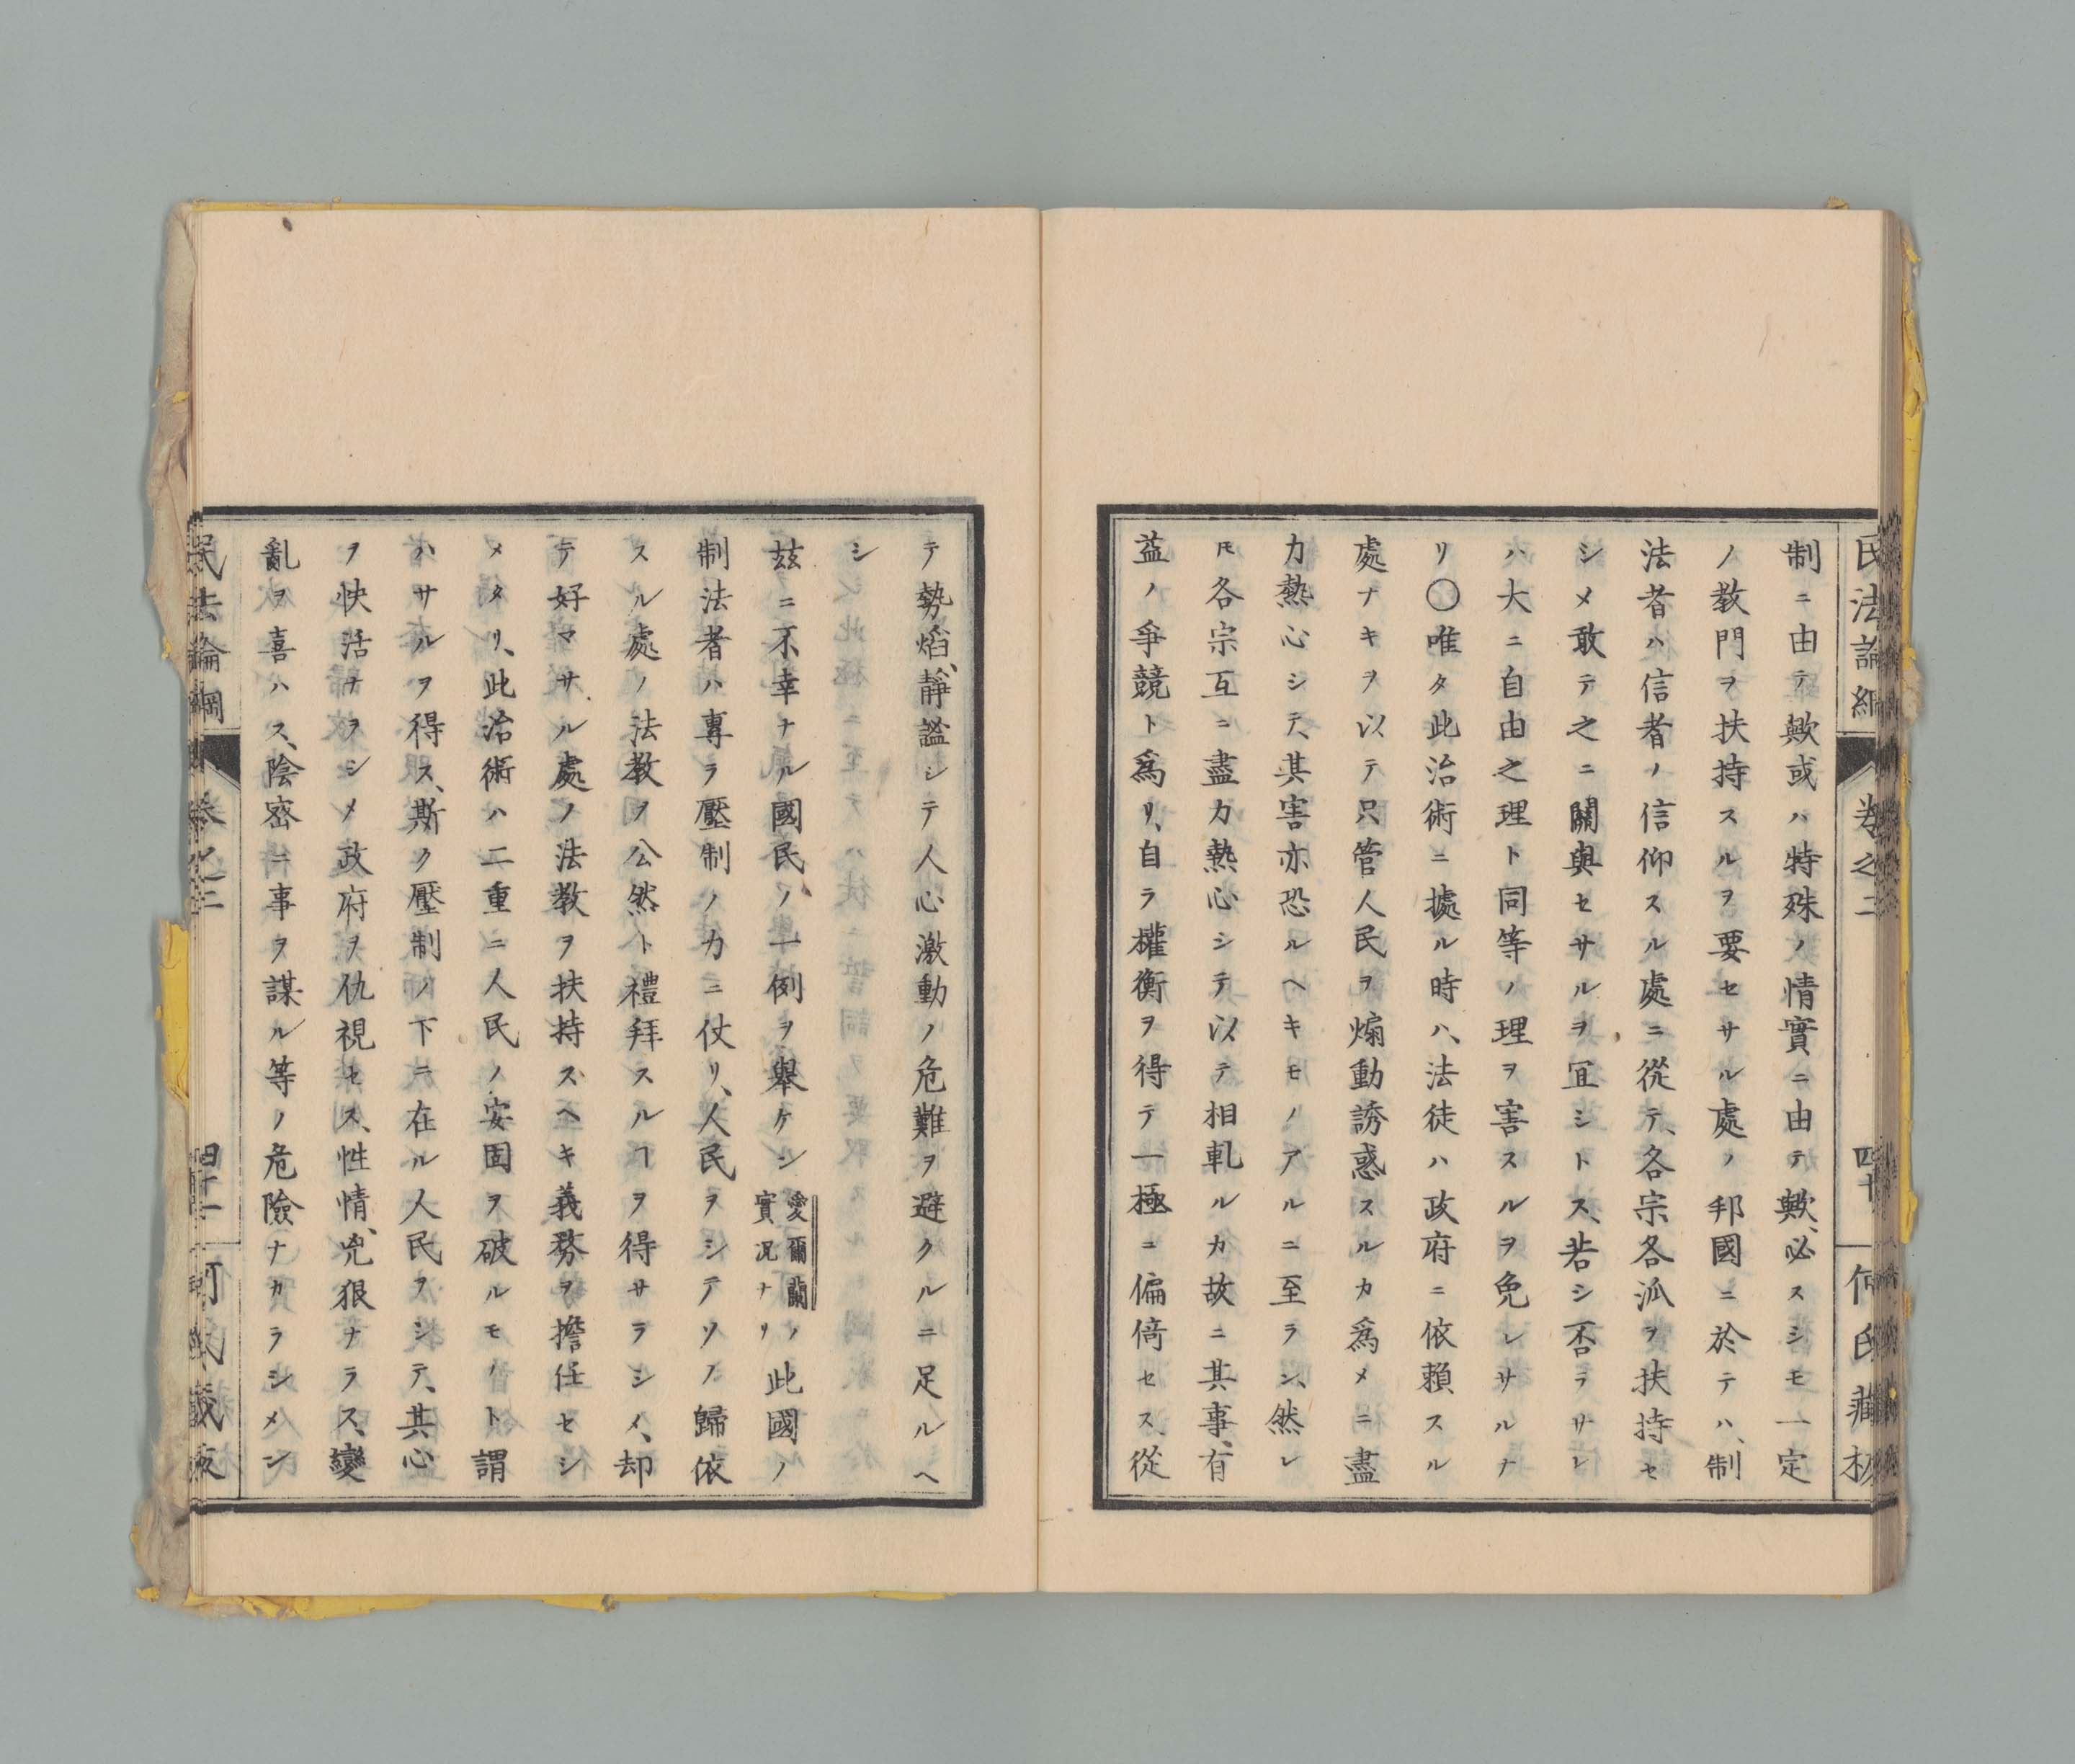 民法論綱
卷之二
四十
何氏藏板
制ニ由テ歟或ハ特殊ノ情實ニ由テ歟、必スシモ一定
ノ敎門ヲ扶持スルヲ要セサル處ノ邦國ニ於テハ、制
法者ハ信者ノ信仰スル處ニ從テ、各宗各派ヲ扶持セ
シメ敢テ之ニ關與セサルヲ冝シトス、若シ否ラサレ
ハ大ニ自由之理ト同等ノ理ヲ害スルヲ免レサルナ
リ〇唯タ此治術ニ據ル時ハ、法徒ハ政府ニ依賴スル
處ナキヲ以テ只管人民ヲ煽動誘惑スルカ爲メニ盡
力熱心シテ、其害亦恐ルヘキモノアルニ至ラン、然レ
𪜈各宗互ニ盡力熱心シテ以テ相軋ルカ故ニ其事、有
益ノ爭競ト爲リ、自ラ權衡ヲ得テ一極ニ偏倚セス、從
テ勢焰、靜謐シテ人心激動ノ危難ヲ避クルニ足ルヘ
シ
玆ニ不幸ナル國民ノ一例ヲ舉ケン愛爾蘭ノ實况ナリ此國ノ
制法者ハ專ラ壓制ノ力ニ仗リ、人民ヲシテソノ歸依
スル處ノ法敎ヲ公然ト禮拜スルヿヲ得サラシメ、却
テ好マサル處ノ法敎ヲ扶持スヘキ義務ヲ擔任セシ
メタリ、此治術ハ二重ニ人民ノ安固ヲ破ルモノト謂
ハサルヲ得ス、斯ク壓制ノ下ニ在ル人民ヲシテ、其心
ヲ快活ナヲシメ政府ヲ仇視セス、性情、兇狠ナラス、變
亂ヲ喜ハス、陰密ニ事ヲ謀ル等ノ危險ナカラシメン
民法論綱
卷之二
四十一
何氏藏板